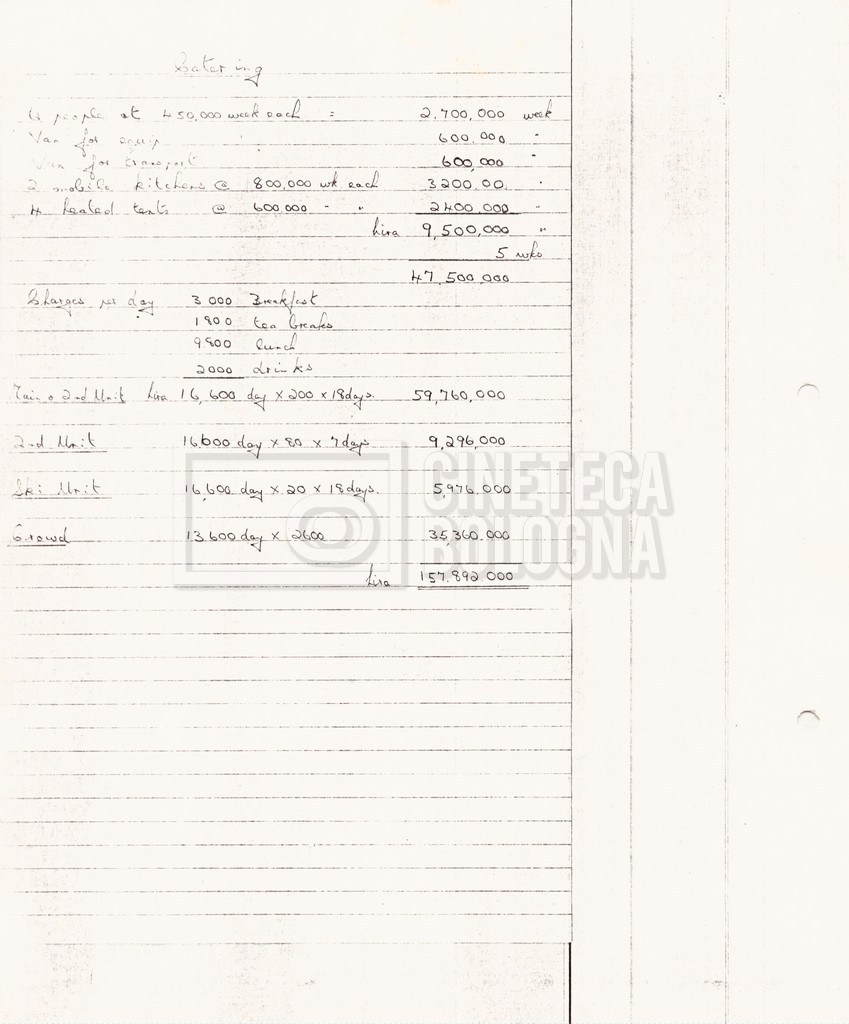 Catering
6 people at 450,000 week each = 2,700,000 week
Van for equip 600,000 "
Van for transport 600,000 "
2 mobile kitchens @ 800,000 wk each 3200.00. "
4 heated tents @ 600.000 " " 2400.000 "
Lira 9,500,000 "
5 wks
47,500,000
Charges per day 3000 Breakfast
1800 tea breaks
9800 lunch
2000 drinks
Main & 2nd Unit Lira 16,600 day x 200 x 18 days. 59,760,000
2nd Unit 16.600 day x 80 x 7 days 9,296,000
Ski Unit 16,600 day x 20 x 18 days. 5,976.000
Crowd 13.600 day x 2600 35,360.000
Lira 157.892.000
CINETECA
BOLOGNA